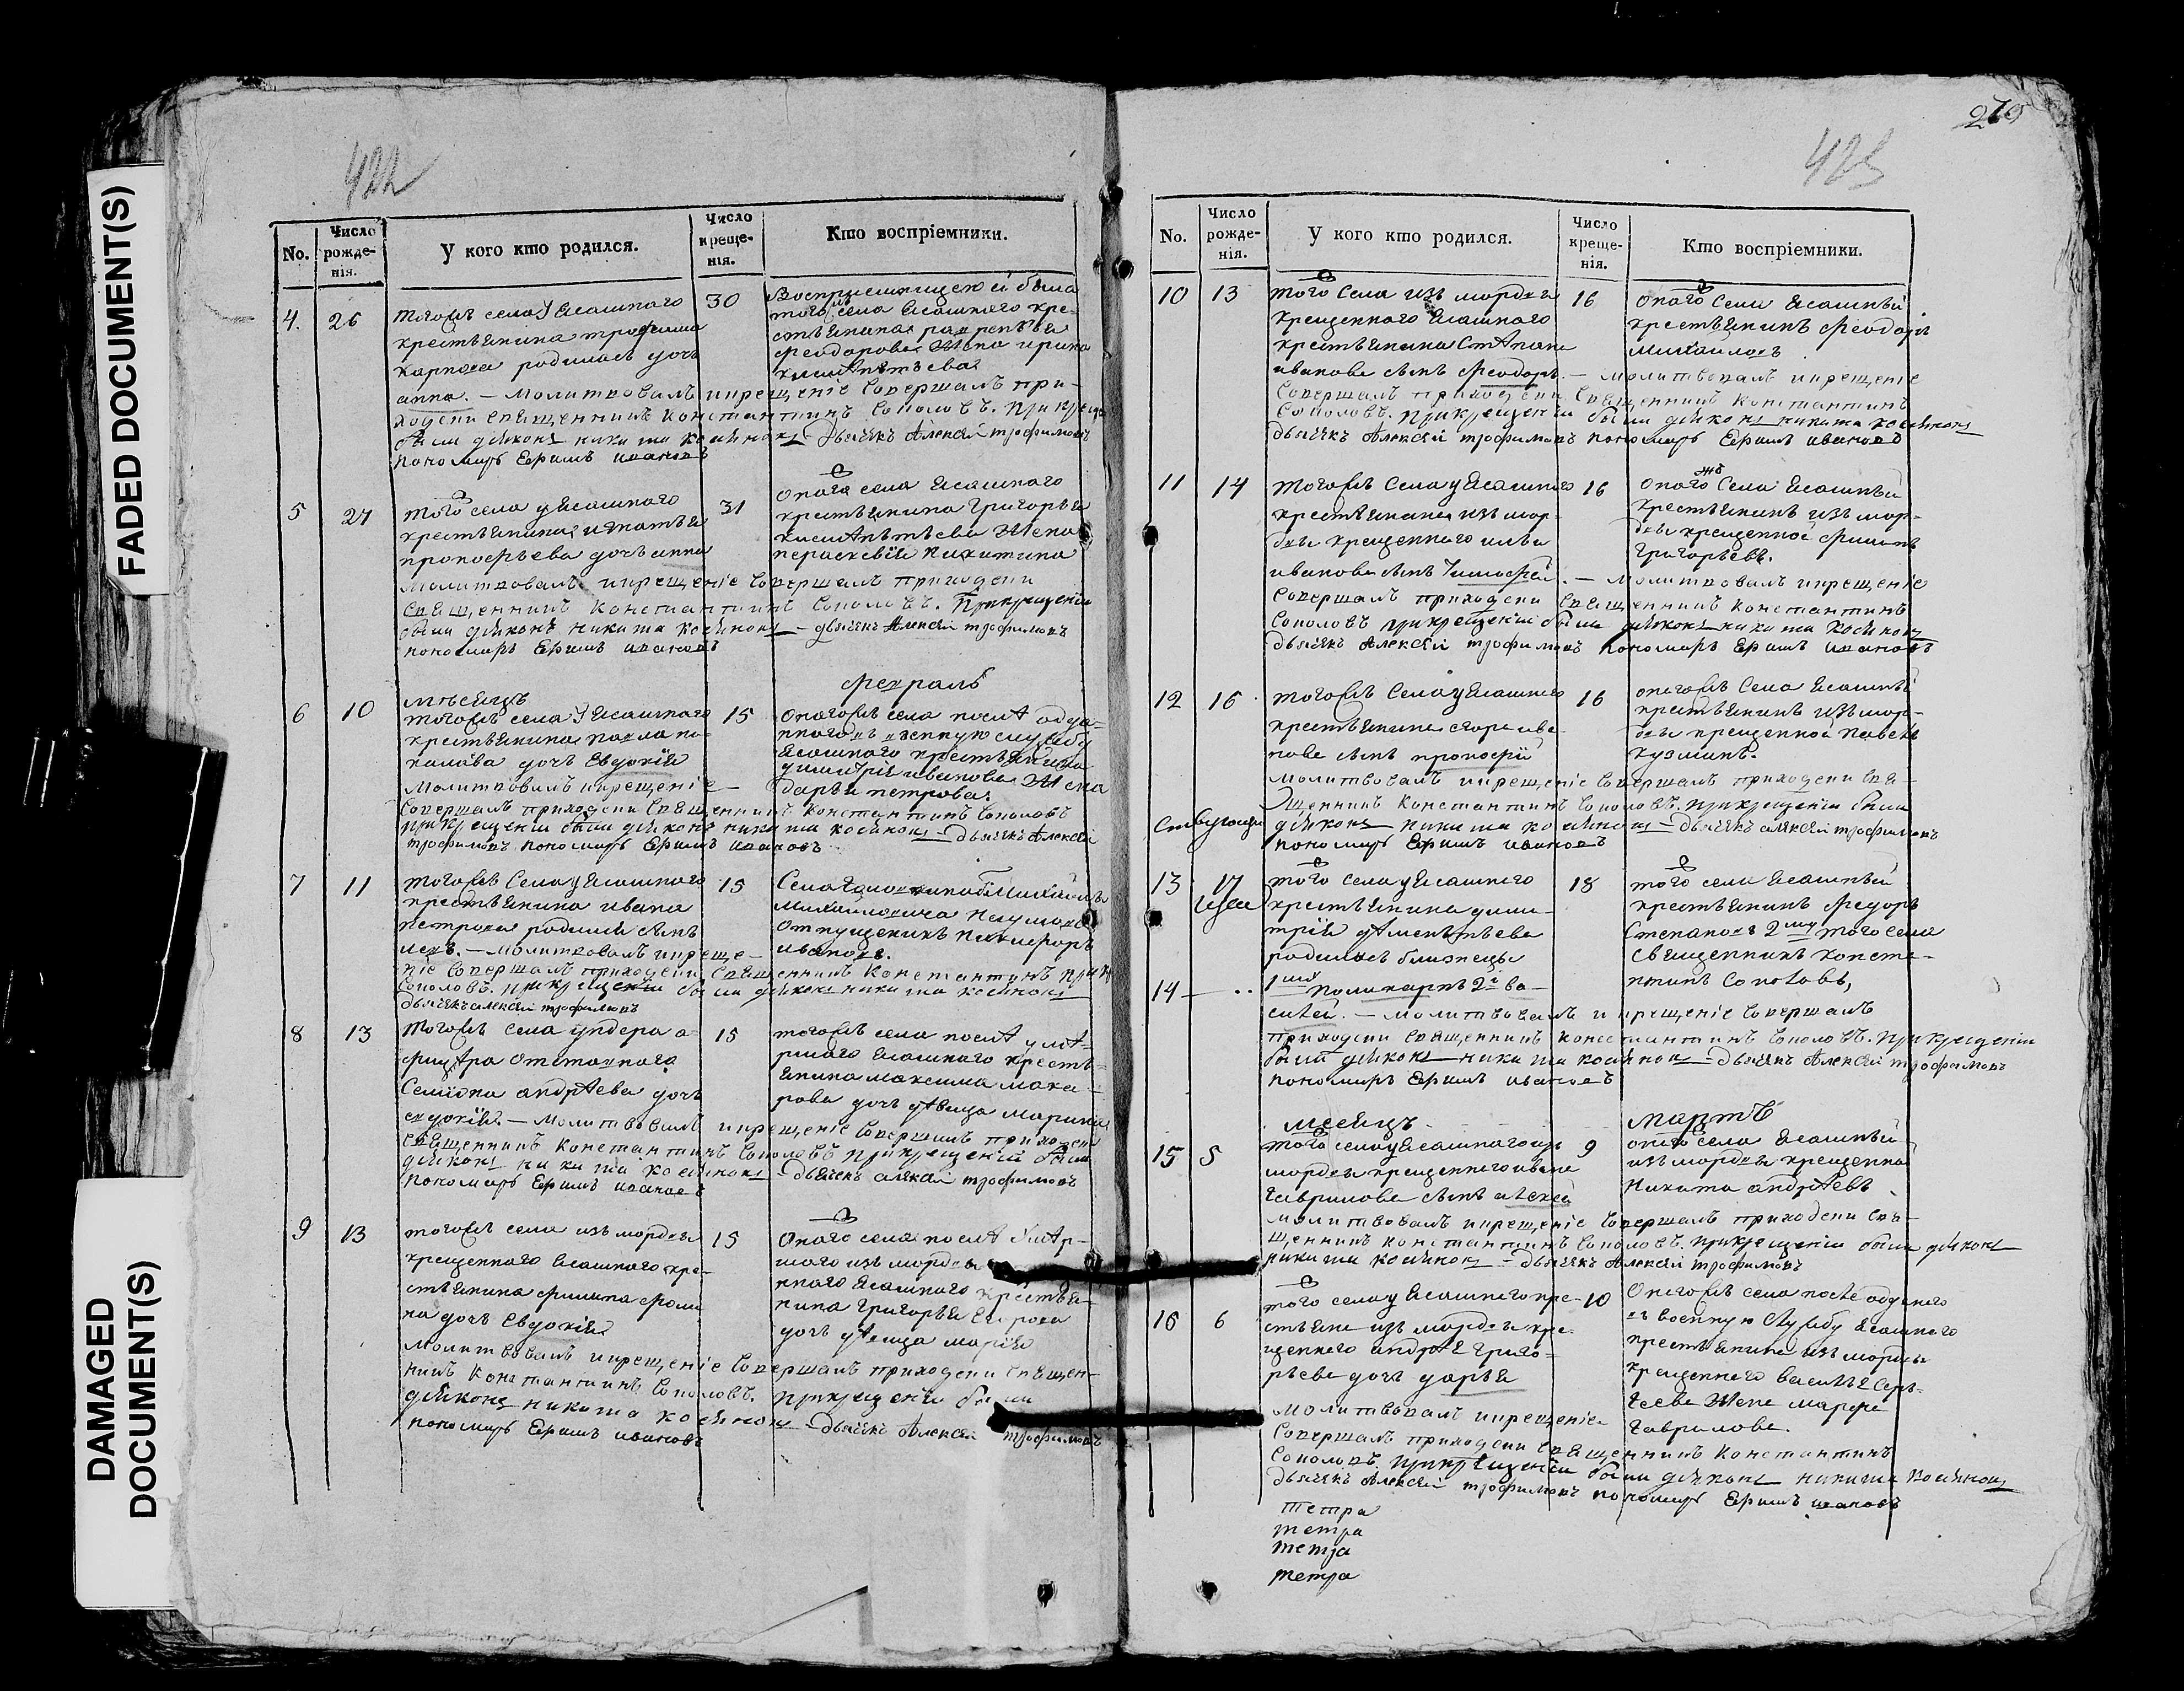 FADED DOCUMENT(S)
DAMAGED
DOCUMENT(S)
422
No.
Число
рожде-
нія.
У кого кто родился.
Число
креще-
нія.
Кто воспріемники.
4. 26
тогожъ села у Ясашного
крестьянина трофима
карпова родилась дочь
анна. – Молитвовалъ и крещеніе Совершалъ при-
ходскій священникъ Константинъ Соколовъ. При креще
были діяконъ никита дьячекъ Алексѣй трофимовъ
пономарь Ефимъ ивановъ
30
Воспріемницею ей была
того села Ясашного кре-
стьянина
Феодорова жена ирина
5 27
Того села у Ясашного
крестьянина игнатья
прокофьева дочь анна
Молитвовалъ и крещеніе Совершалъ приходскій
Священникъ Константинъ Соколовъ. При крещеніи
были діяконъ никита дьячекъ Алексѣй трофимовъ
пономарь Ефимъ ивановъ
31
Оного села Ясашного
крестьянина Григорья
жена
параскевія Никитина
мѣсяцъ
февраль
6 10
тогожъ села у Ясашного
крестьянина павла
дочь Евдокія
Молитвовалъ и крещеніе
Совершалъ приходскій Священникъ Константинъ Соколовъ
при крещеніи были діяконъ никита дьячекъ Алексѣй
трофимовъ пономарь Ефимъ ивановъ
15
Оногожъ села послѣ отда-
ного въ военную службу
Ясашного крестьянина
димитрія иванова жена
дарья петрова
7 11
тогожъ Села у Ясашного
крестьянина ивана
петрова родился сынъ
– Молитвовалъ и креще-
ніе Совершалъ приходскій Священникъ Константинъ
Соколовъ. при крещеніи были діяконъ никита
дьячекъ алексѣй трофимовъ
15
Села
Михайловича
отпущеникъ Никифоръ
ивановъ.
8 13
Тогожъ села ундера о-
фицѣра отставного
Семіона андрѣева дочь
евдокія. – Молитвовалъ и крещеніе Совершалъ приходскій
священникъ Константинъ Соколовъ при крещеніи были
діяконъ никита дьячекъ алексѣй трофимовъ
пономарь Ефимъ ивановъ
15
тогожъ села послѣ умѣ-
ршого Ясашного кресть-
янина максима мака-
рова дочь дѣвица марина
9 13
тогожъ села изъ мордвы
крещенного Ясашного кре-
стьянина филипа фоми
на дочь Евдокія
Молитвовалъ и крещеніе Совершалъ приходскій Священ-
никъ Константинъ Соколовъ. при крещеніи были
діяконъ никита дьячекъ Алексѣй трофимовъ
пономарь Ефимъ ивановъ
15
Оного села послѣ Умѣр-
шого изъ мордвы
нного Ясашного крестья-
нина Григорья Егорова
дочь дѣвица марія
423
No.
Число
рожде-
нія.
У кого кто родился.
Число
креще-
нія.
Кто воспріемники.
10 13
того Села изъ мордвы
крещенного Ясашного
крестьянина Стѣпана
иванова сынъ Феодоръ. – Молитвовалъ и крещеніе
Совершалъ приходскій Священникъ Константинъ
Соколовъ. при крещеніи были діяконъ никита
дьячекъ Алексѣй трофимовъ пономарь Ефимъ ивановъ
16
Оного Села Ясашный
крестьянинъ Феодоръ
Михайловъ
11 14
Тогожъ Села у Ясашного
крестьянина изъ мор-
двы крещенного ильи
иванова сынъ Тимофѣй. – Молитвовалъ и крещеніе
Совершалъ приходскій Священникъ Константинъ
Соколовъ при крещеніи были діяконъ никита
дьячекъ Алексѣй трофимовъ пономарь Ефимъ ивановъ
16
Оного Села Ясашный
крестьянинъ изъ мор-
двы крещенной Филипъ
Григорьевъ.
12 16
тогожъ Села у Ясашного
крестьянина егора ива-
нова сынъ прокофій
Молитвовалъ и крещеніе Совершалъ приходскій Свя-
щенникъ Константинъ Соколовъ. при крещеніи были
діяконъ никита дьячекъ алексѣй трофимовъ
пономарь Ефимъ ивановъ
16
оногожъ Села Ясашный
крестьянинъ изъ мор-
двы крещенной Павелъ
кузминъ.
13 17
того села у Ясашного
крестьянина дими-
трія дѣментьева
родилось близнецы
14
1ый Поликарпъ 2й ва-
силей. – Молитвовалъ и крещеніе Совершалъ
приходскій священникъ константинъ Соколовъ. при крещеніи
были діяконъ никита дьячекъ Алексѣй трофимовъ
пономарь Ефимъ ивановъ
18
того села Ясашный
крестьянинъ федоръ
Степановъ 2му того села
Священникъ конста-
нтинъ Соколовъ,
месецъ
мартъ
15 5
того села у Ясашного изъ
мордвы крещенного ивана
гаврилова сынъ алексѣй
Молитвовалъ и крещеніе Совершалъ приходскій Свя-
щенникъ Константинъ Соколовъ. при крещеніи были діяконъ
никита дьячекъ Алексѣй трофимовъ
9
оного села Ясашный
изъ мордвы крещенной
Никита андрѣевъ
16 6
того села у Ясашного кре-
стьяни изъ мордвы кре-
щенного андрѣя григо-
рьева дочь дарья
Молитвовалъ и крещеніе
Совершалъ приходскій Священникъ Константинъ
Соколовъ. при крещеніи были діяконъ никита
дьячекъ Алексѣй трофимовъ пономарь Ефимъ ивановъ
10
Оногожъ села послѣ отданого
въ военную службу Ясашного
крестьянина изъ мордвы
крещенного василья Сер-
геева жена марфа
гаврилова.
тетра
тетра
тетра
тетра